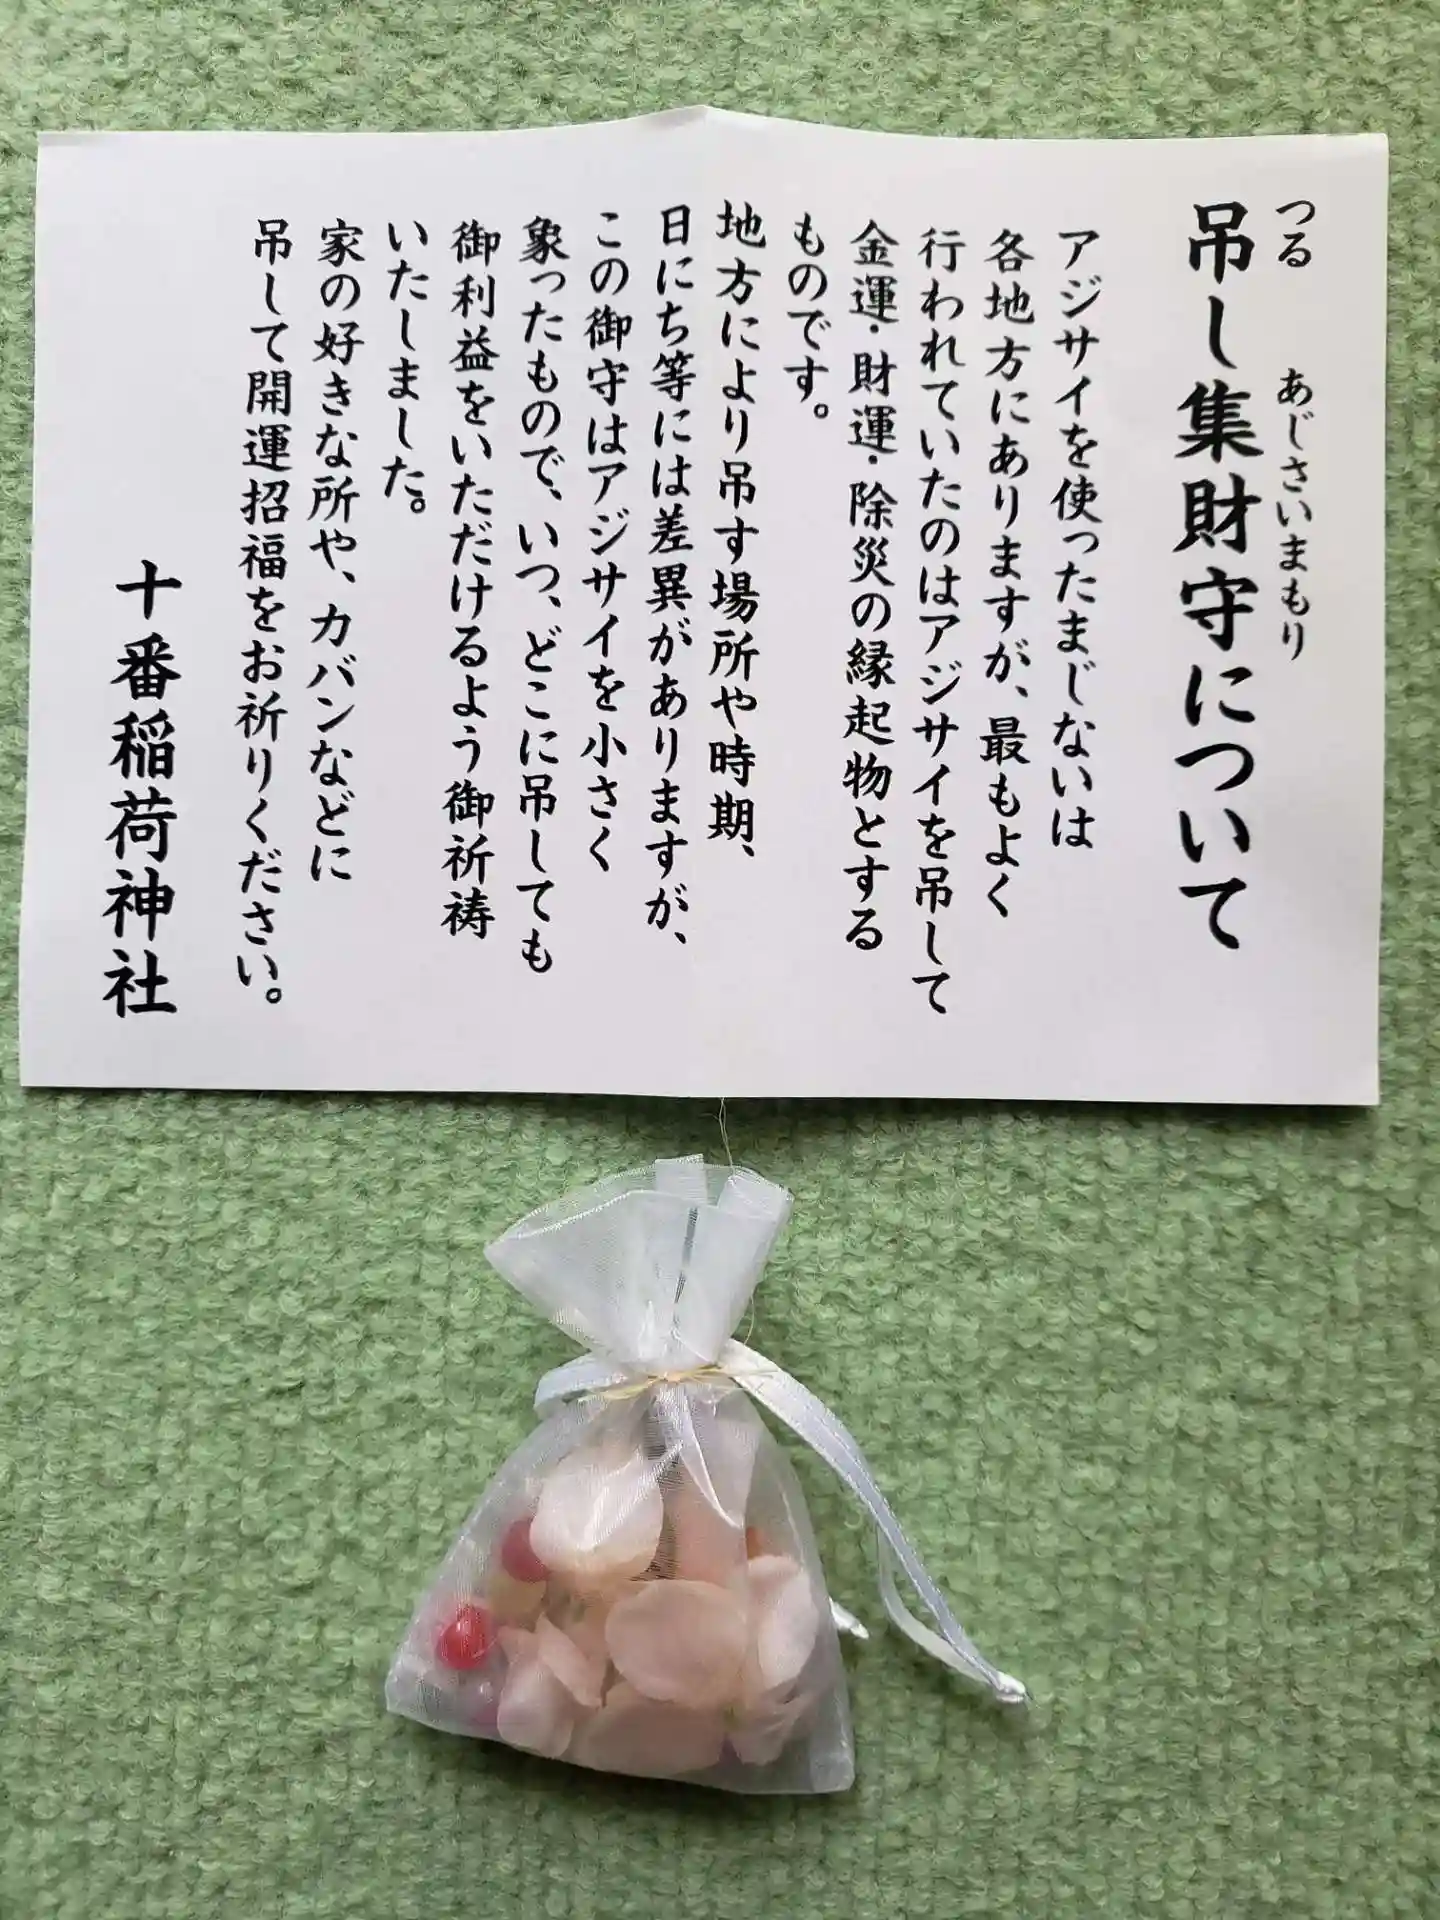 吊し集財守について
つる あじさいまもり
アジサイを使ったまじないは
各地方にありますが、最もよく
行われていたのはアジサイを吊して
金運・財運・除災の縁起物とする
ものです。
地方により吊す場所や時期、
日にち等には差異がありますが、
この御守はアジサイを小さく
象ったもので、いつ、どこに吊しても
御利益をいただけるよう御祈祷
いたしました。
家の好きな所や、カバンなどに
吊して開運招福をお祈りください。
十番稲荷神社